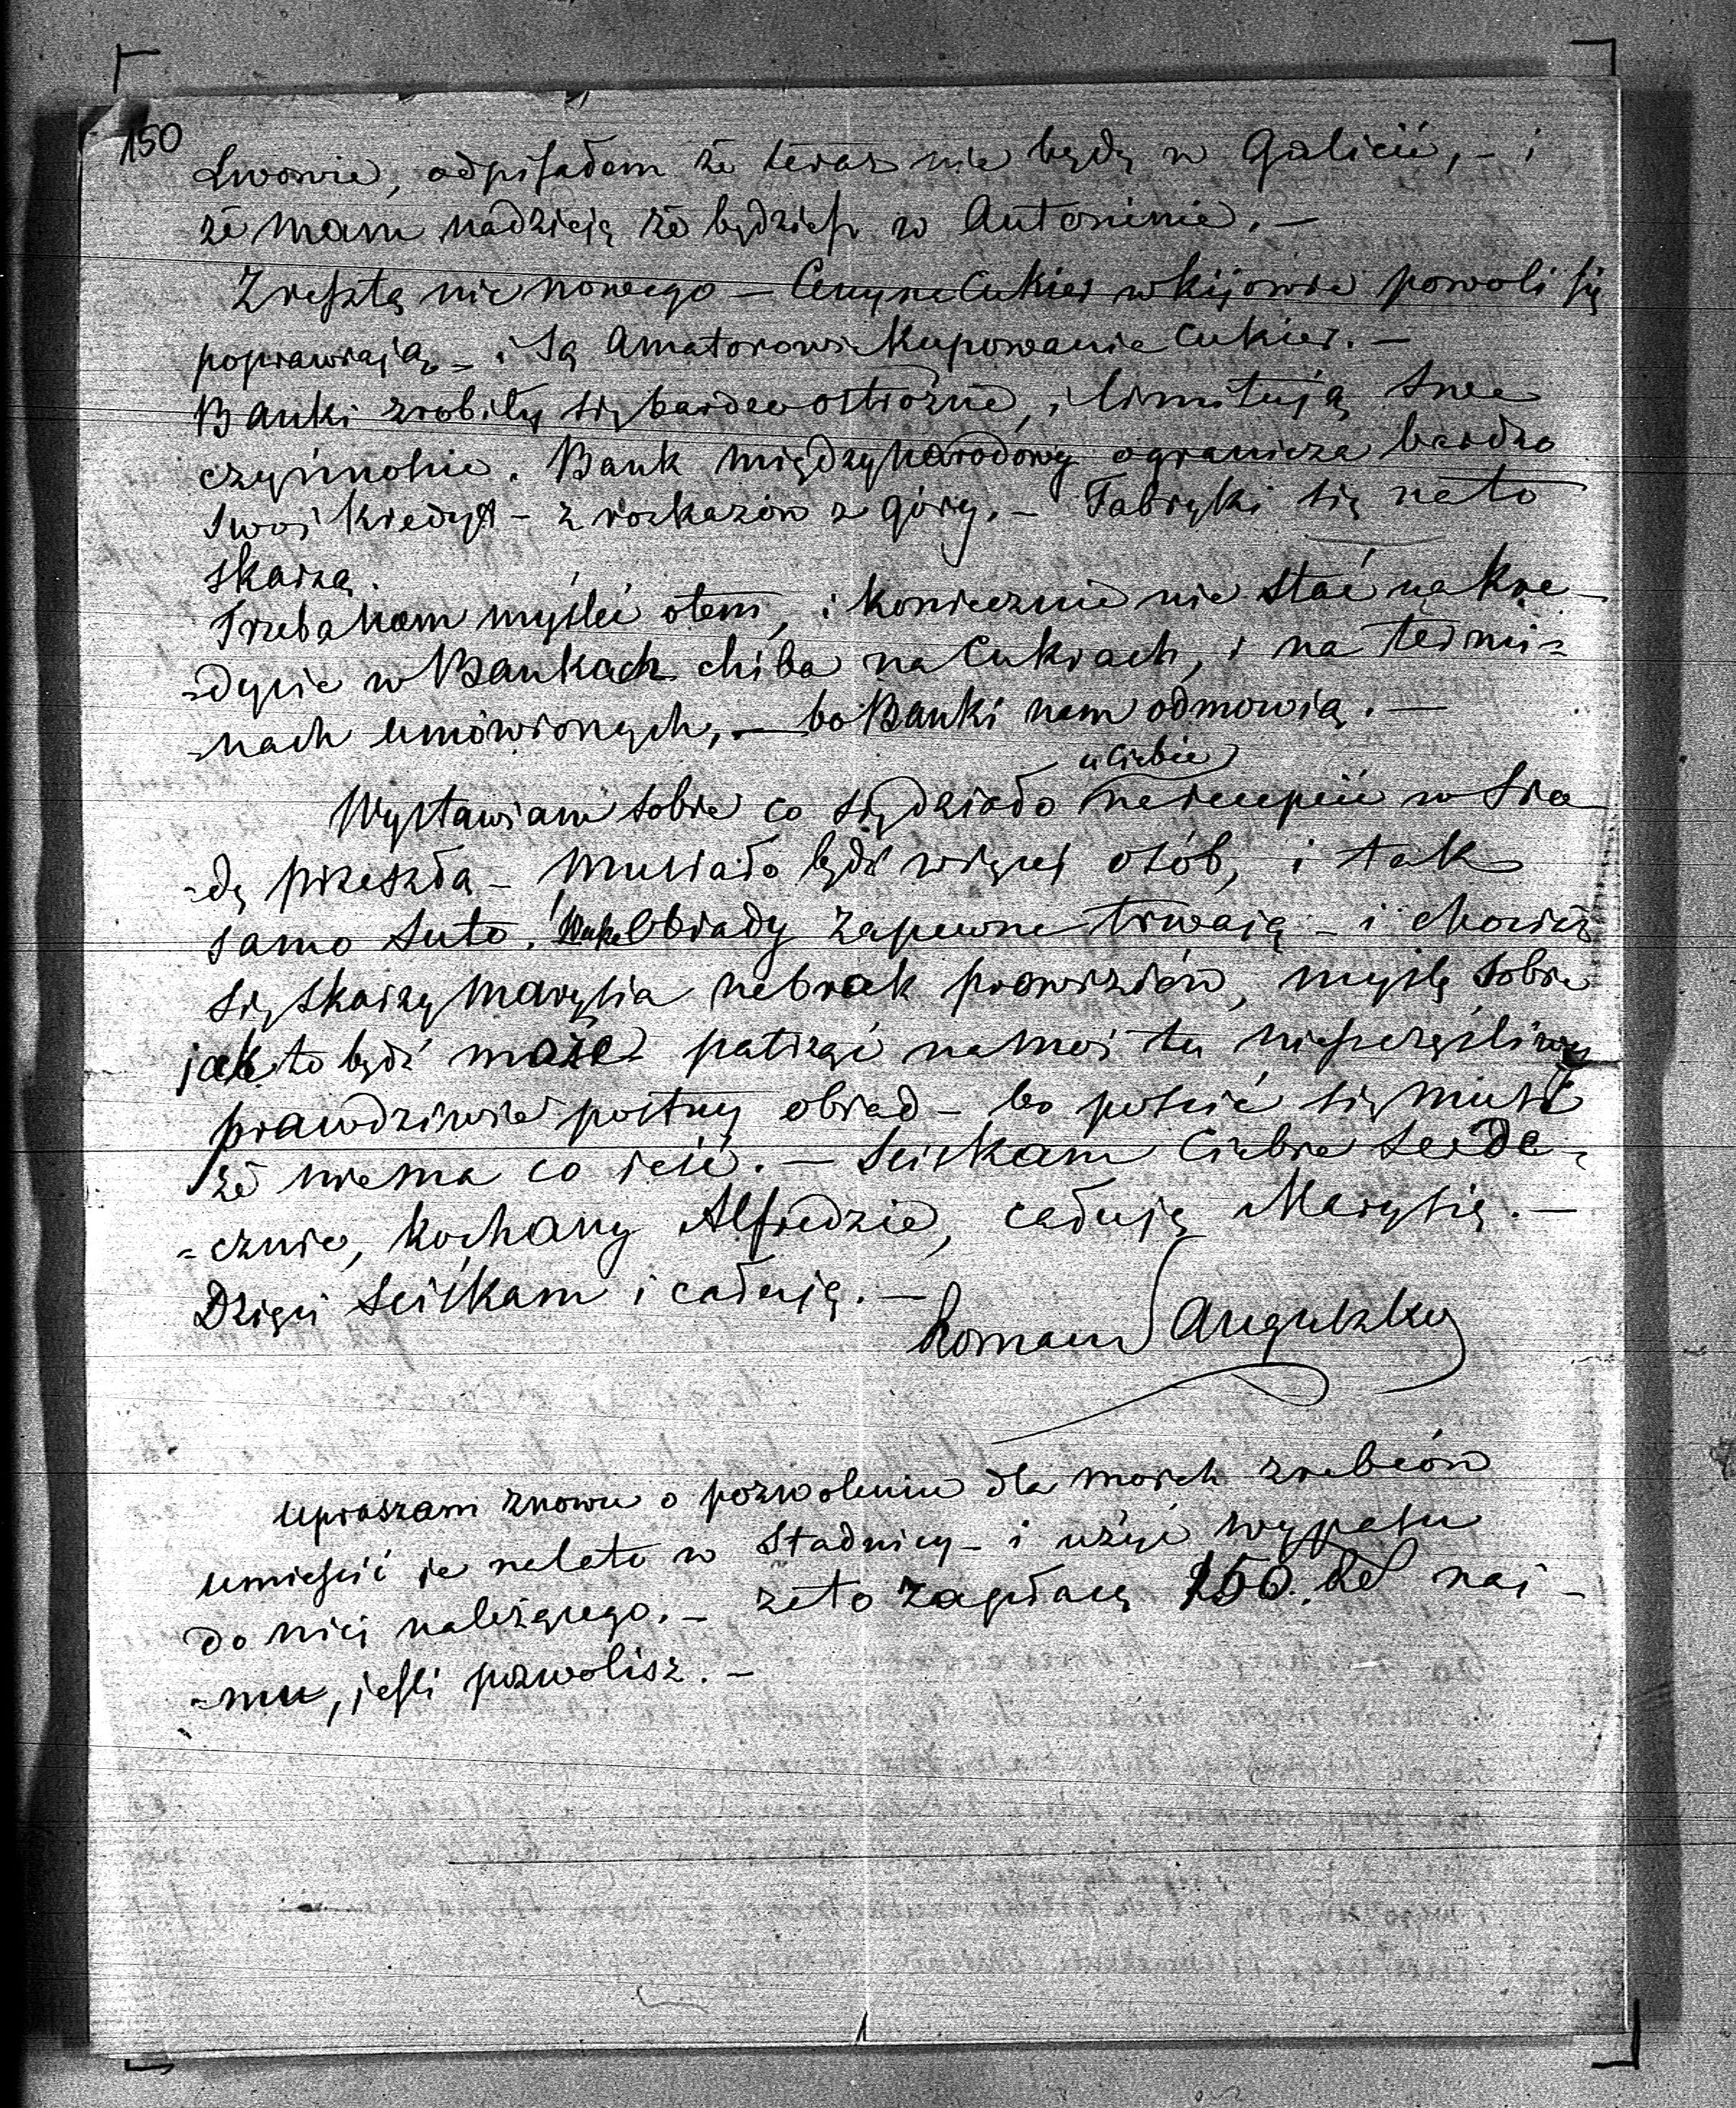 150
Lwowie, odpisałem że teraz nie będę w Galicii, - i
że mam nadzieję że będziesz w Antoninie. -
Zresztą nic nowego - Ceny na Cukier w kijowie powoli się
poprawiają - i są Amatorowie kupowania Cukier. -
Banki zrobiły się bardzo ostrożne, i limitują swe
czynnoście. Bank międzynarodowy ogranicza bardzo
swoj kredyt - z rozkazów z góry. - Fabryki się na to
skarżą.
Trzeba nam myśleć otem, i koniecznie nie stać na kre-
-dycie w Bankach chiba na Cukrach, i na termi=
-nach umówionych, - bo Banki nam odmowią. -
u Ciebie
Wystawiam sobie co się działo na recepcii w Sro
-dę przeszłą - Musiało bydź więcej osób, i tak
samo suto. Obiady zapewne trwają - i chociaż
się skarży Marysia na brak prowiziów, myślę sobie
jak to bydź może patrząc na moj tu nieszczęśliwy
prawdziwie postny obiad - bo poście się musi
że niema co jeść. - Sciskam Ciebie serde-
=cznie, kochany Alfredzie, całuję Marysię. -
Dzieci sciskam i całuję. -
Roman Sanguszko
Upraszam znowu o pozwoleniu dla moich zrebców
umieścić je na lato w Stadnicy - i użyć wypasu
do niej należącego. - za to zapłacę 150. naj-
-mu, jesli pozwolisz. -